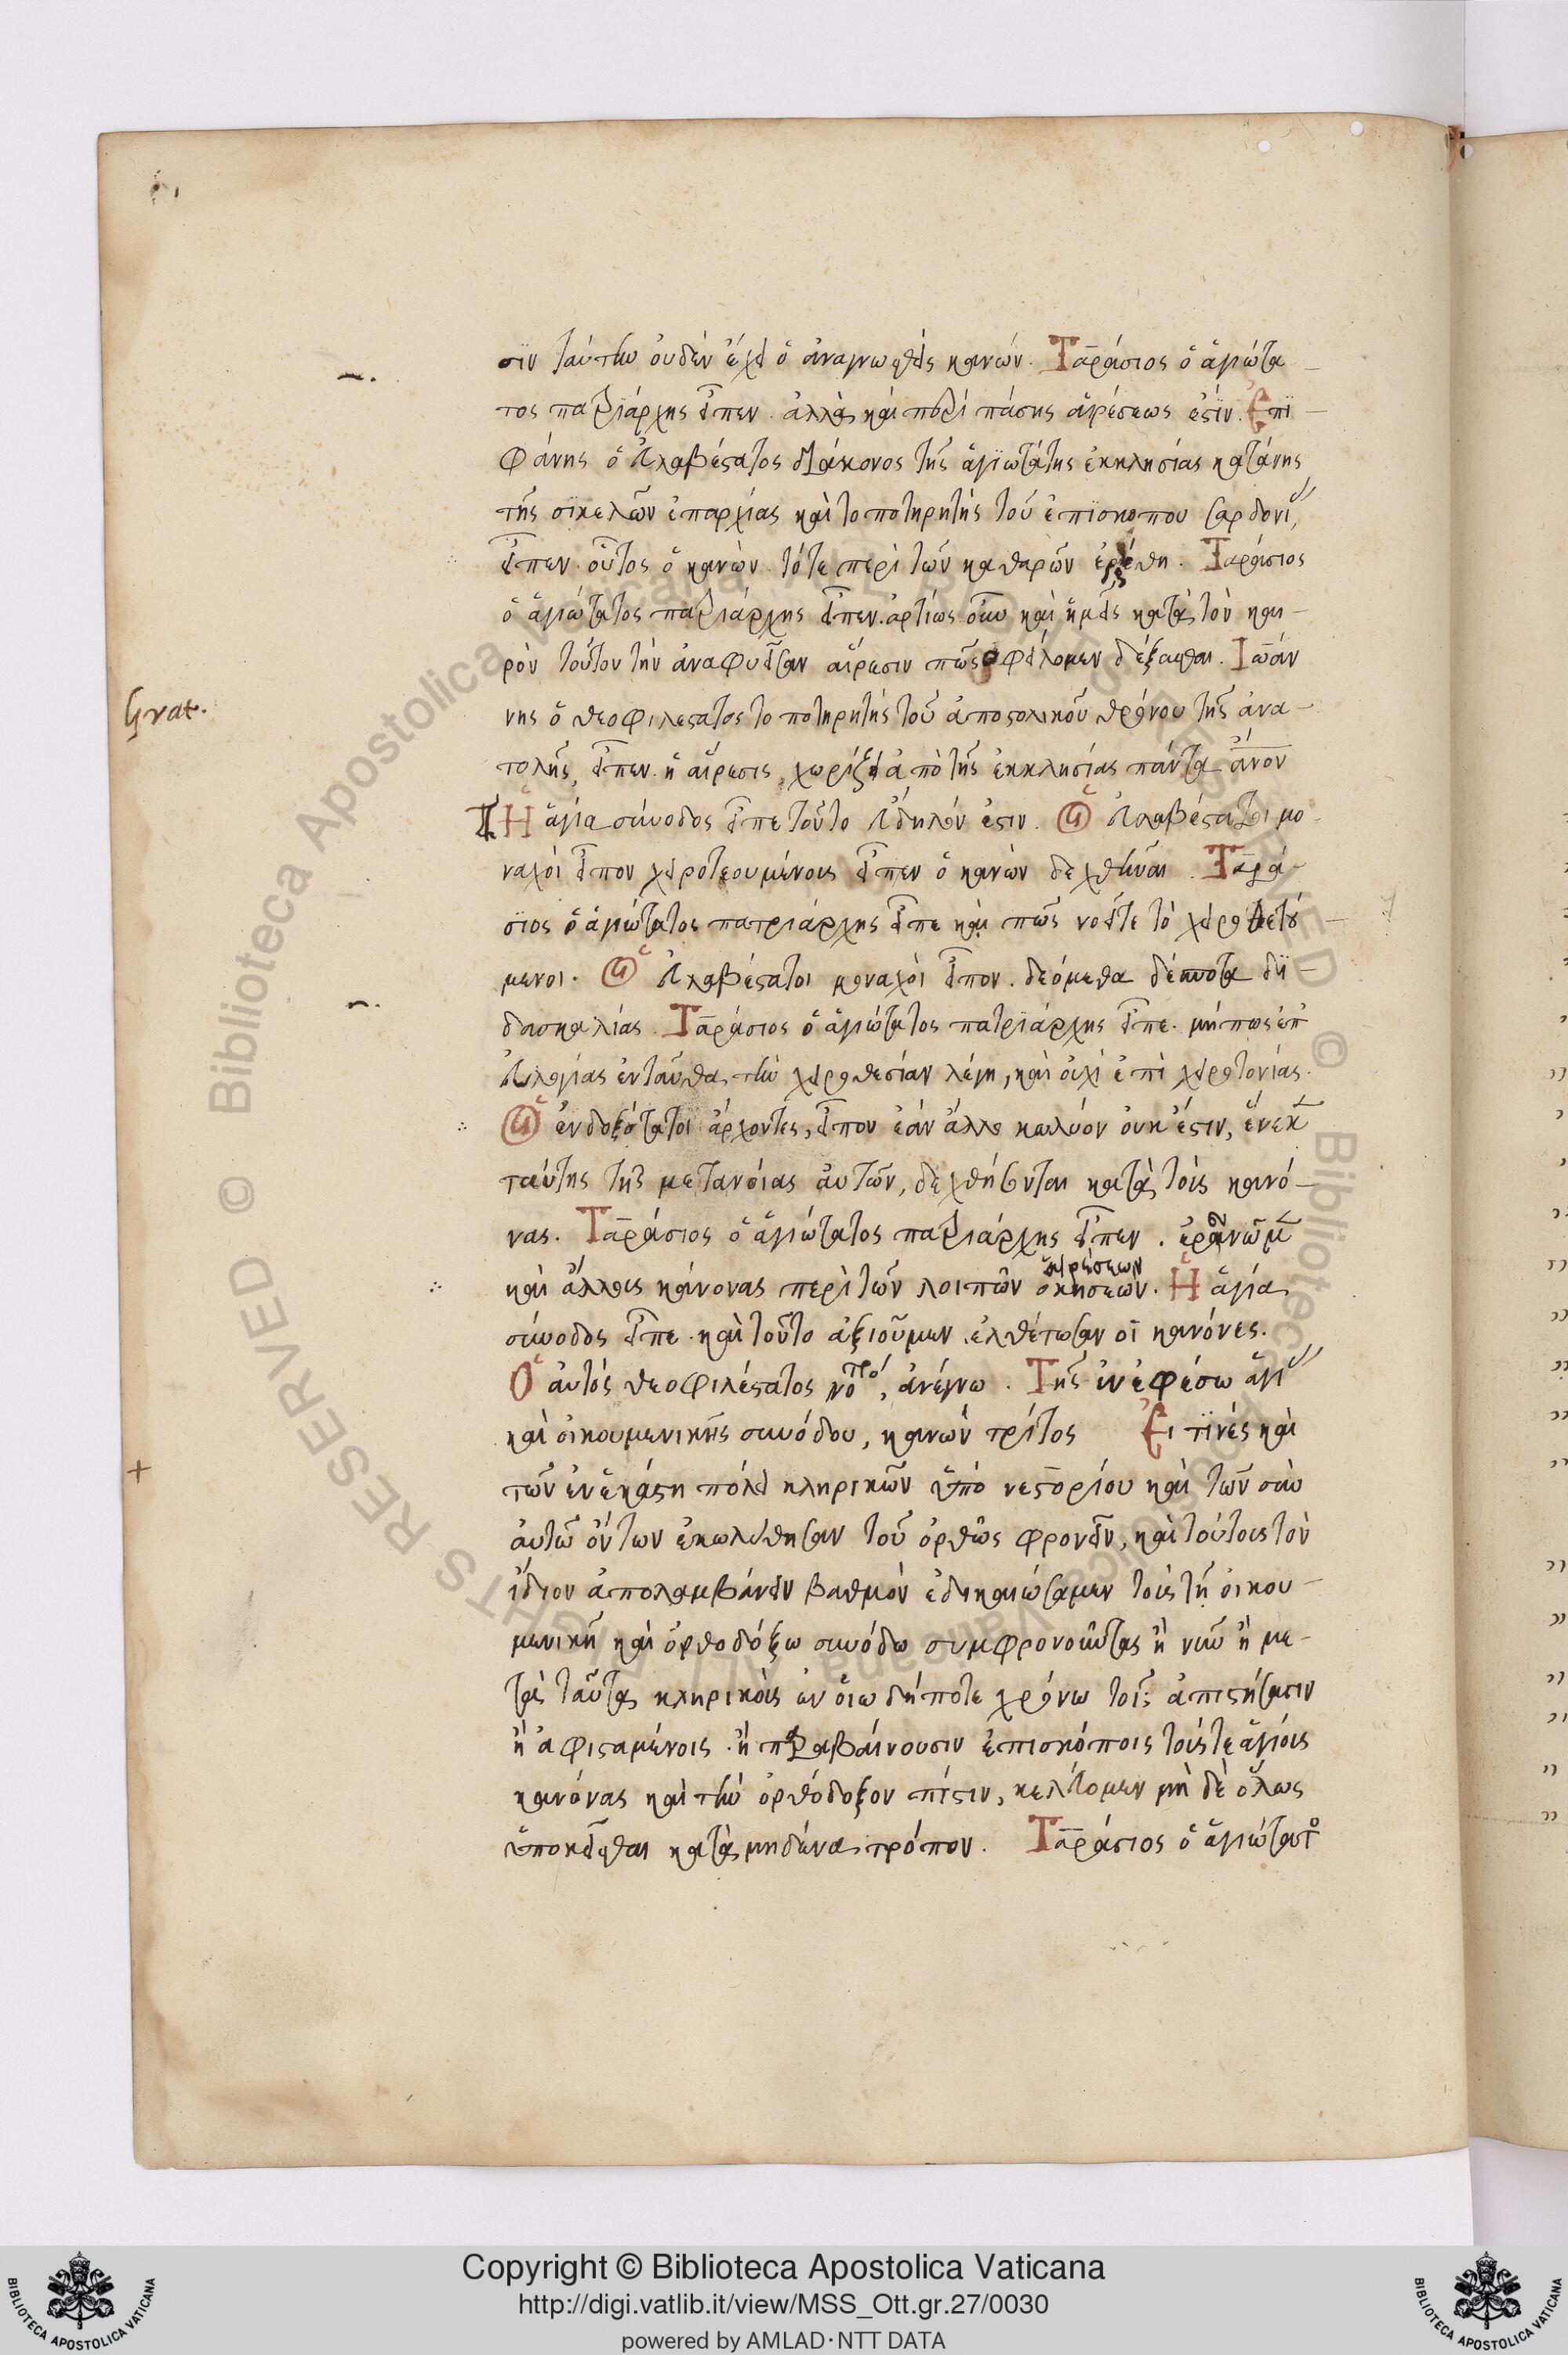 σιν ταύτην οὐδὲν ἔχει ὁ ἀναγνωσθεὶς κανών. Ταράσιος ὁ ἁγιώτα
τος πατριάρχης εἶπεν. ἀλλὰ καὶ περὶ πάσης αἱρέσεως ἐστίν. Ἐπι
φάνης ὁ εὐλαβέστατος διάκονος τῆς ἁγιωτάτης ἐκκλησίας κατάνης
τῆς σικελῶν ἐπαρχίας καὶ τοποτηρητὴς τοῦ ἐπισκόπου σαρδονί
εἶπεν. οὗτος ὁ κανὼν τότε περὶ τῶν καθαρῶν ἐρέθη. Ταράσιος
ὁ ἁγιώτατος πατριάρχης εἶπεν. ἀρτίως οὖν καὶ ἡμεῖς κατὰ τὸν και
ρὸν τοῦτον τὴν ἀναφυεῖσαν αἵρεσιν πῶς ὀφείλομεν δέξασθαι. Ἰωάν
Grat.
νης ὁ θεοφιλέστατος τοποτηρητὴς τοῦ ἀποστολικοῦ θρόνου τῆς ἀνα
τολῆς, εἶπεν. ἡ αἵρεσις χωρίζει ἀπὸ τῆς ἐκκλησίας πάντα ἄνον
Ἡ ἁγία σύνοδος εἶπε τοῦτο εὔδηλόν ἐστιν. Οἱ εὐλαβέστατοι μο
ναχοὶ εἶπον χειροτεουμένους εἶπεν ὁ κανὼν δεχθῆναι. Ταρά
σιος ὁ ἁγιώτατος πατριάρχης εἶπε καὶ πῶς νοεῖτε τὸ χειροθετού
μενοι. Οἱ εὐλαβέστατοι μοναχοὶ εἶπον. δεόμεθα δέσποτα δι
δασκαλίας. Ταράσιος ὁ ἁγιώτατος πατριάρχης εἶπε. μήπως ἐπ
εὐλογίας ἐνταῦθα τὴν χειροθεσίαν λέγη, καὶ οὐχὶ ἐπὶ χειροτονίας.
Οἱ ἐνδοξότατοι ἄρχοντες, εἶπον ἐὰν ἄλλο κωλύον οὐκ ἔστιν, ἕνεκ
ταύτης τῆς μετανοίας αὐτῶν, δεχθήσονται κατὰ τοὺς κανό
νας. Ταράσιος ὁ ἁγιώτατος πατριάρχης εἶπεν.
καὶ ἄλλους κάνονας περὶ τῶν λοιπῶν αἱρέσεων. Ἡ ἁγία
σύνοδος εἶπε. καὶ τοῦτο ἀξιοῦμεν ἐλθέτωσαν οἱ κανόνες.
Ὁ αὐτὸς θεοφιλέστατος νο, ἀνέγνω. Τῆς ἐν ἐφέσω ἁγί
καὶ οἰκουμενικῆς συνόδου, κανὼν τρίτος Εἰ τινὲς καὶ
+ τῶν ἐν ἑκάστη πόλει κληρικῶν ὑπὸ νεστορίου καὶ τῶν σὺν
αὐτῶ ὄντων ἐκωλύθησαν τοῦ ὀρθῶς φρονεῖν, καὶ τούτους τὸν
ἴδιον ἀπολαμβάνειν βαθμὸν ἐδικαιώσαμεν τοὺς τῆ οἰκου
μενικῆ καὶ ὀρθοδόξω συνόδω συμφρονοῦντας ἢ νῦν ἢ με
τὰ ταῦτα κληρικοὺς ἐν οἵω δήποτε χρόνω τοῖς ἀπιστήσασιν
ἢ ἀφισταμένοις. ἢ παραβαίνουσιν ἐπισκόποις τοὺς τε ἁγίους
κανόνας καὶ τὴν ὀρθόδοξον πίστιν, κελεύομεν μὴ δὲ ὅλως
ὑποκεῖσθαι κατὰ μηδένα τρόπον. Ταράσιος ὁ ἁγιώτατο
Copyright © Biblioteca Apostolica Vaticana
http://digi.vatlib.it/view/MSS_Ott.gr.27/0030
powered by AMLAD·NTT DATA
BIBLIOTECA APOSTOLICA VATICANA
BIBLIOTECA APOSTOLICA VATICANA